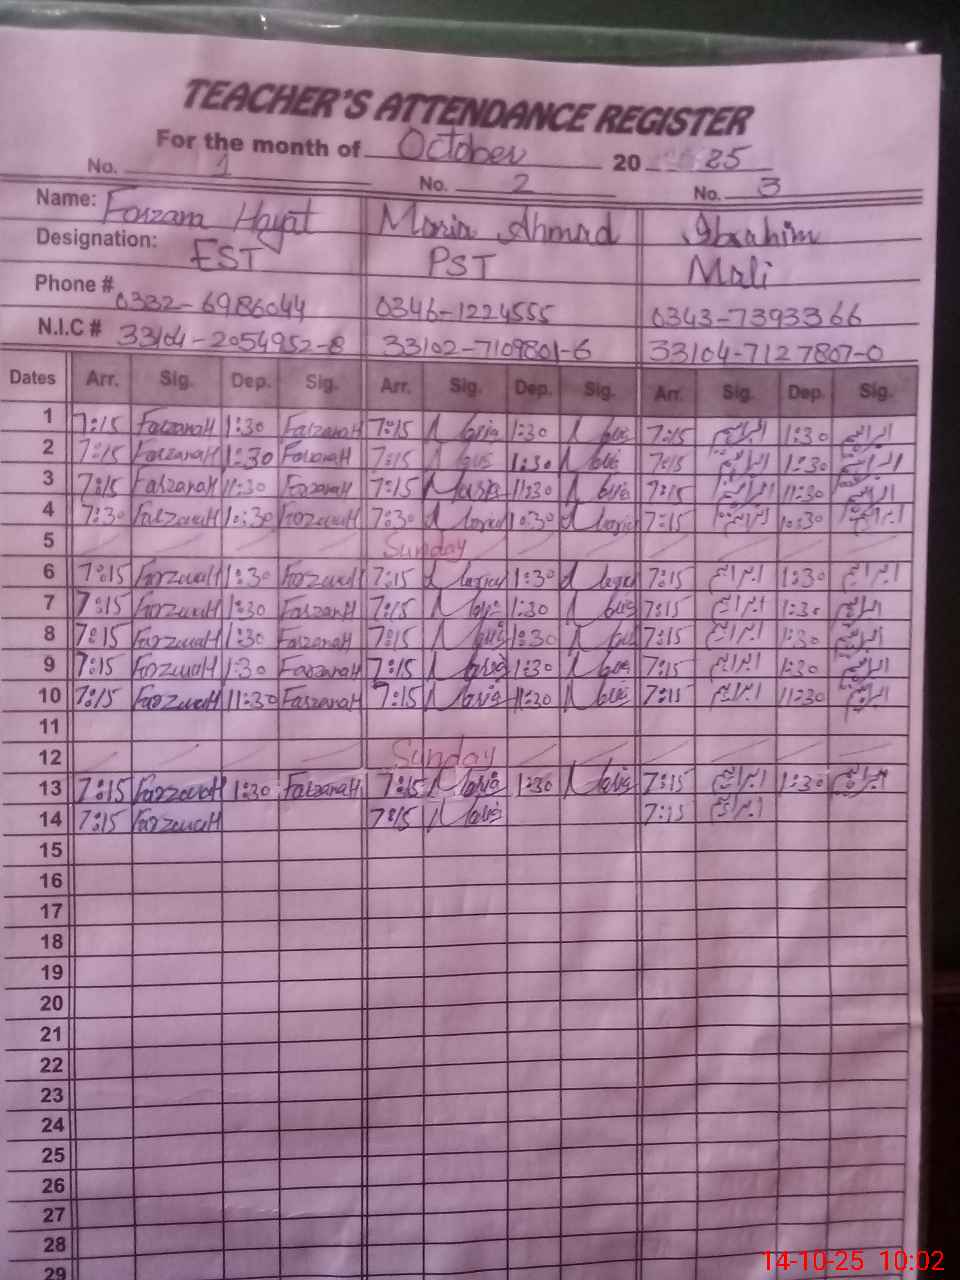 TEACHER'S ATTENDANCE REGISTER
For the month of October 2025
No. 1 No. 2 No. 3
Name: Faizana Hayat Maria Ahmad Ibrahim
Designation: EST PST Mali
Phone # 0332-6986044 0346-1224555 0343-7393366
N.I.C # 33104-2054952-8 33102-7109801-6 33104-7127807-0
Dates Arr. Sig. Dep. Sig. Arr. Sig. Dep. Sig. Arr. Sig. Dep. Sig.
1 7:15 FaizanaH 1:30 FaizanaH 7:15 Maria 1:30 Maria 7:15 ابراہیم 1:30 ابراہیم
2 7:15 FaizanaH 1:30 FaizanaH 7:15 Maria 1:30 Maria 7:15 ابراہیم 1:30 ابراہیم
3 7:15 FaizanaH 11:30 FaizanaH 7:15 Maria 11:30 Maria 7:15 ابراہیم 11:30 ابراہیم
4 7:30 FaizanaH 10:30 FaizanaH 7:30 Maria 10:30 Maria 7:15 ابراہیم 10:30 ابراہیم
5 Sunday
6 7:15 FaizanaH 1:30 FaizanaH 7:15 Maria 1:30 Maria 7:15 ابراہیم 1:30 ابراہیم
7 7:15 FaizanaH 1:30 FaizanaH 7:15 Maria 1:30 Maria 7:15 ابراہیم 1:30 ابراہیم
8 7:15 FaizanaH 1:30 FaizanaH 7:15 Maria 1:30 Maria 7:15 ابراہیم 1:30 ابراہیم
9 7:15 FaizanaH 1:30 FaizanaH 7:15 Maria 1:30 Maria 7:15 ابراہیم 1:30 ابراہیم
10 7:15 FaizanaH 11:30 FaizanaH 7:15 Maria 11:30 Maria 7:15 ابراہیم 11:30 ابراہیم
11
12 Sunday
13 7:15 FaizanaH 1:30 FaizanaH 7:15 Maria 1:30 Maria 7:15 ابراہیم 1:30 ابراہیم
14 7:15 FaizanaH 7:15 Maria 7:15 ابراہیم
15
16
17
18
19
20
21
22
23
24
25
26
27
28
29
14-10-25 10:02